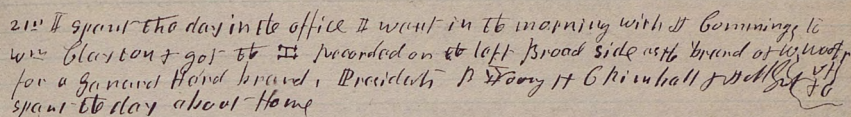 21st I spent the day in the office I want in the morning with J Cummings to
Wm Clayton & got the recorded on the left Broad side as the brand of W Woodruff
for a General Herd brand, Presidents B Young H C Kimball &
spent the day about Home